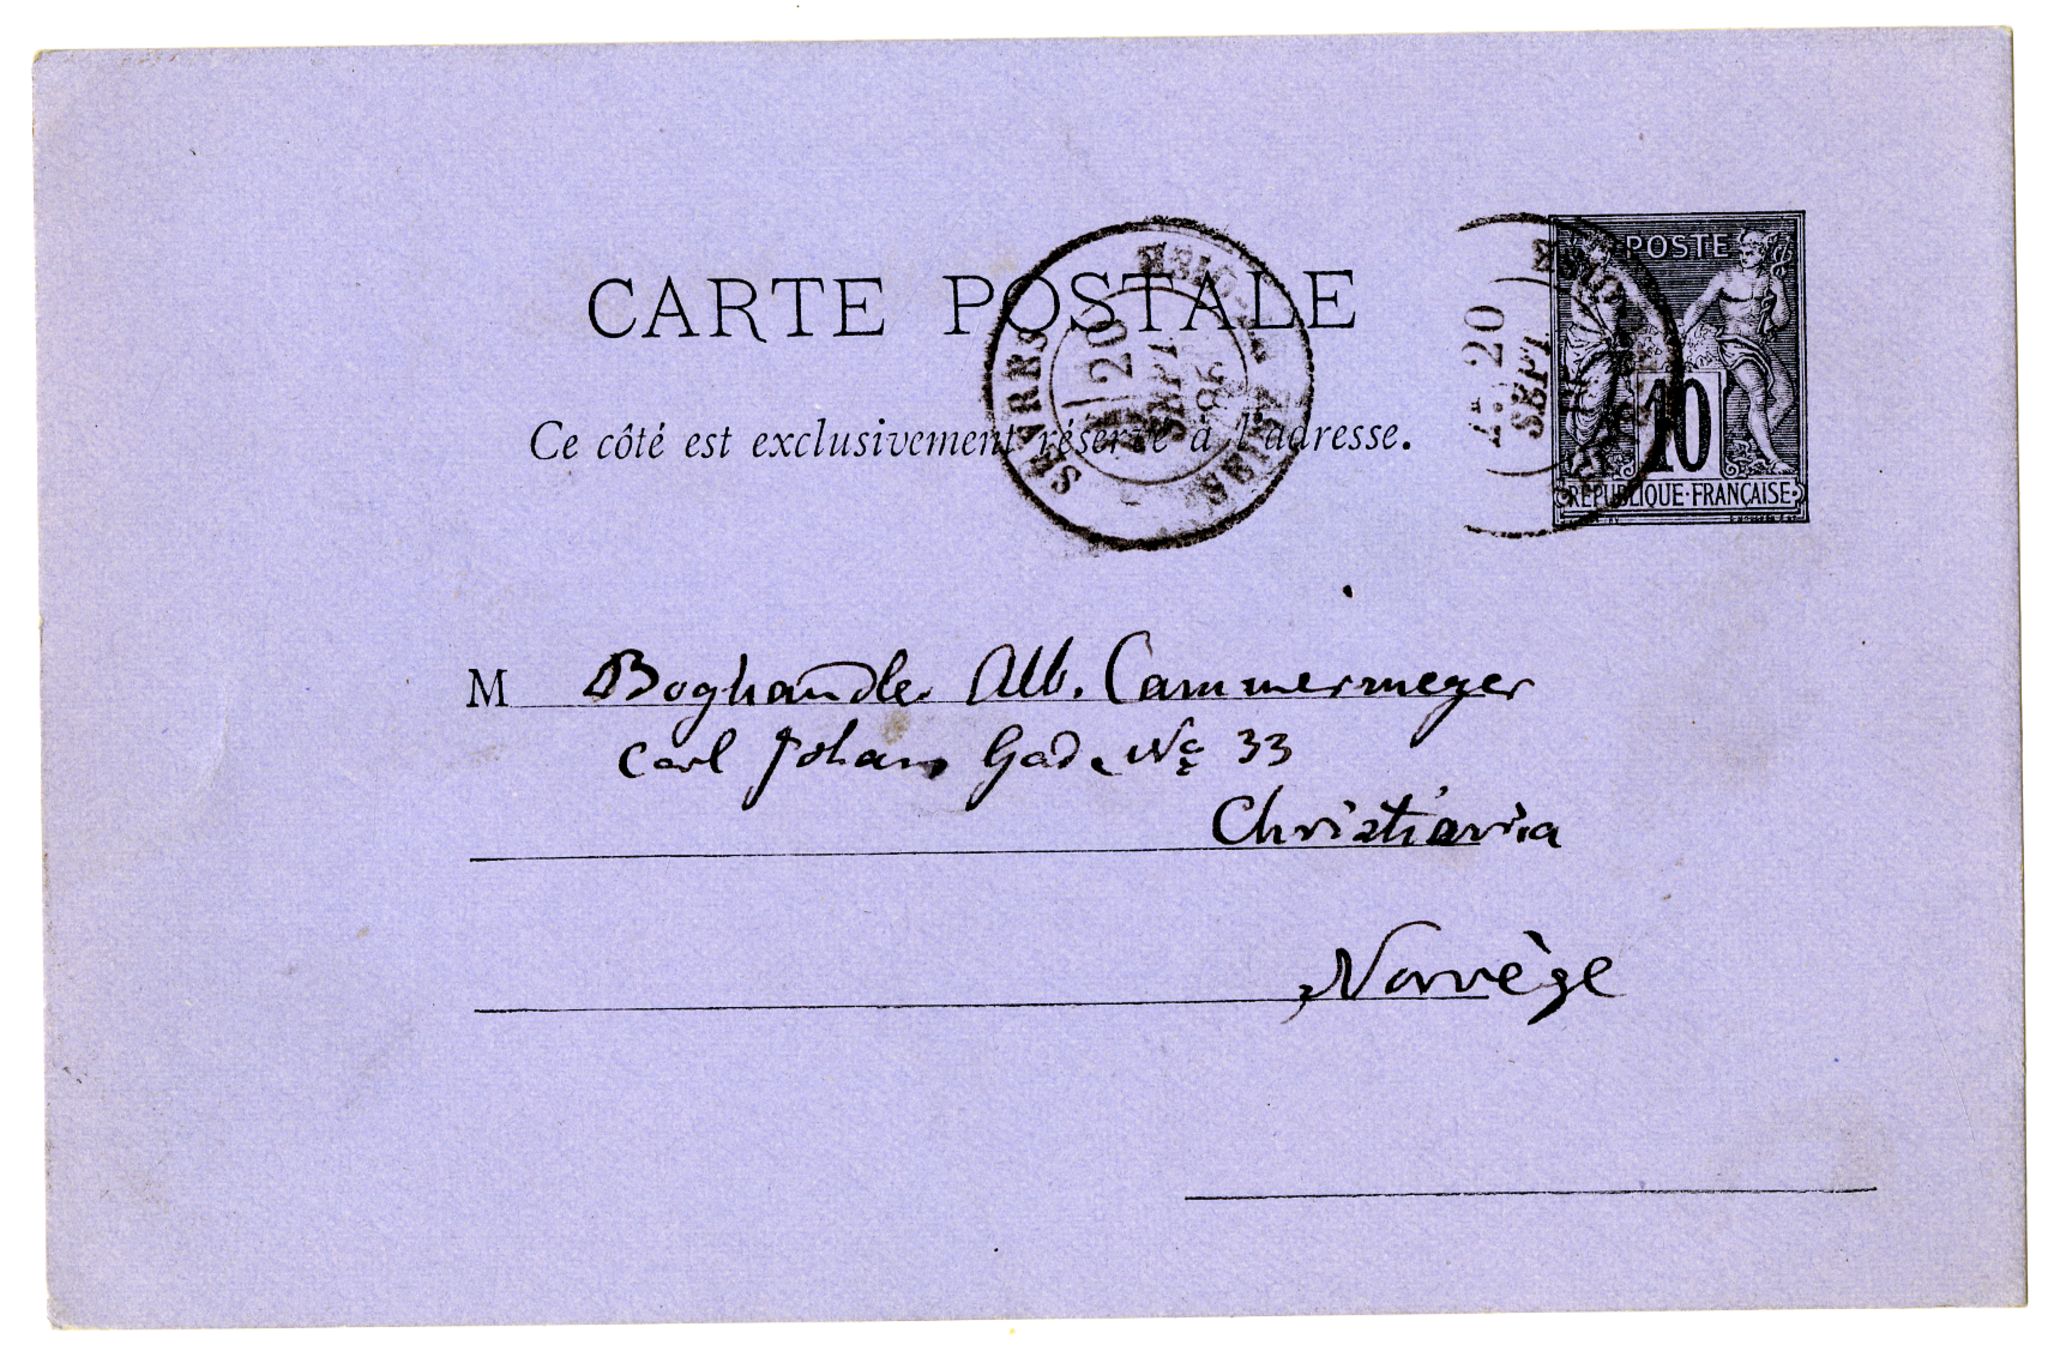 CARTE POSTALE
Ce côté est exclusivement réservé à l'adresse.
20
SEPT
POSTE
10
RÉPUBLIQUE·FRANÇAISE
M Boghandler Alb. Cammermeyer
Carl Johans Gade No 33
Christiania
Norvège